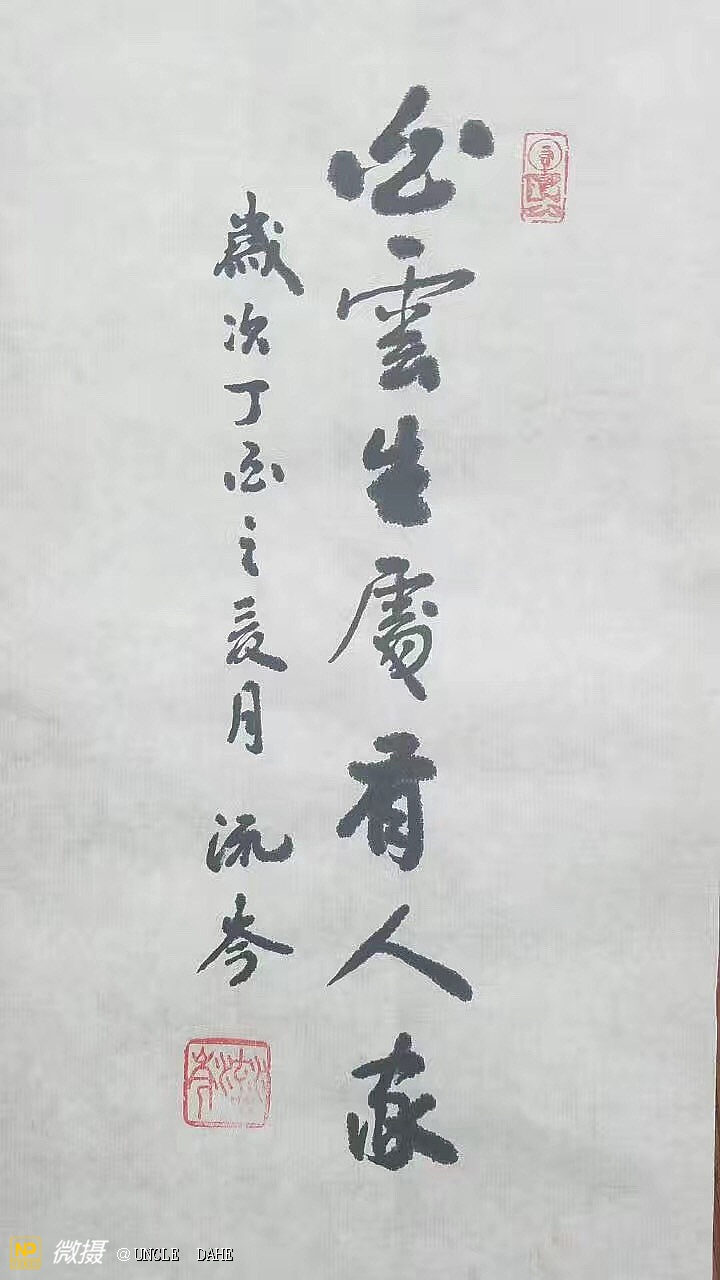 白雲生處有人家
歲次丁酉之夏月 流岑
微摄 @UNCLE DAHE